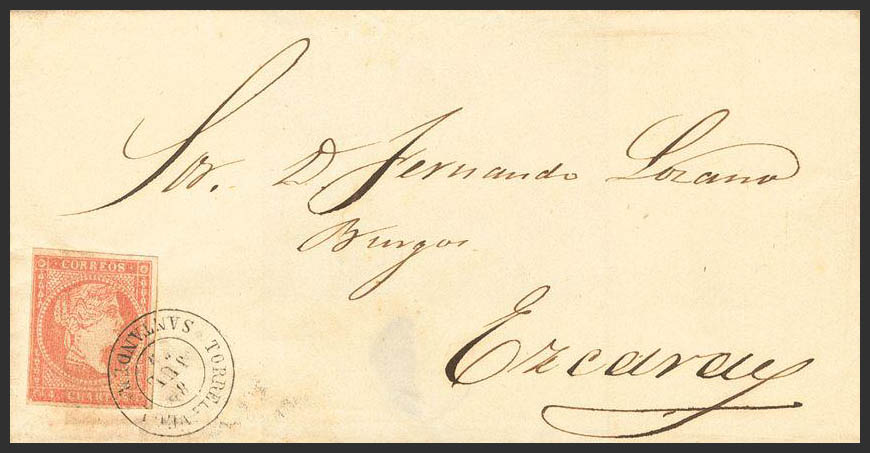 Sor. D. Fernando Lozano
Burgos
Ezcaray
CORREOS
4 CUARTOS
TORREL.ª VEGA
SANTANDER